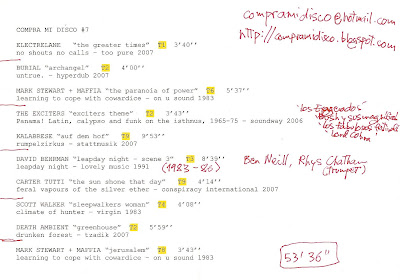 compramidisco@hotmail.com
http://compramidisco.blogspot.com
COMPRA MI DISCO #7
ELECTRELANE "the greater times" T1 3'40''
no shouts no calls - too pure 2007
BURIAL "archangel" T2 4'00''
untrue. - hyperdub 2007
MARK STEWART + MAFFIA "the paranoia of power" T6 5'37''
learning to cope with cowardice - on u sound 1983
THE EXCITERS "exciters theme" T2 3'43''
Panama! Latin, calypso and funk on the isthmus, 1965-75 - soundway 2006
"los Exagerados"
"los fabulosos festivales"
KALABRESE "auf dem hof" T9 9'53''
rumpelzirkus - stattmusik 2007
DAVID BEHRMAN "leapday night - scene 3" T3 8'39''
leapday night - lovely music 1991 (1983-86)
Ben Neill, Rhys Chatham
(trumpet)
CARTER TUTTI "the sun shone that day" T9 4'14''
feral vapours of the silver ether - conspiracy international 2007
SCOTT WALKER "sleepwalkers woman" T4 4'08''
climate of hunter - virgin 1983
DEATH AMBIENT "greenhouse" T2 5'59''
drunken forest - tzadik 2007
MARK STEWART + MAFFIA "jerusalem" T8 3'43''
learning to cope with cowardice - on u sound 1983
53'36"